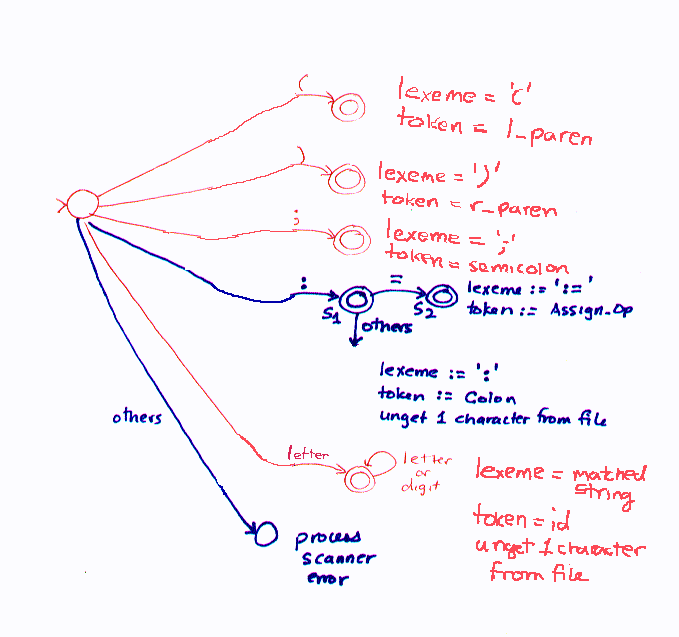 (
lexeme = '('
token = l_paren
)
lexeme = ')'
token = r_paren
;
lexeme = ';'
token = semicolon
:
=
S1
S2
lexeme := ':='
token := Assign_Op
others
lexeme := ':'
token := Colon
unget 1 character from file
others
letter
letter
or
digit
lexeme = matched
string
token = id
unget 1 character
from file
process
scanner
error